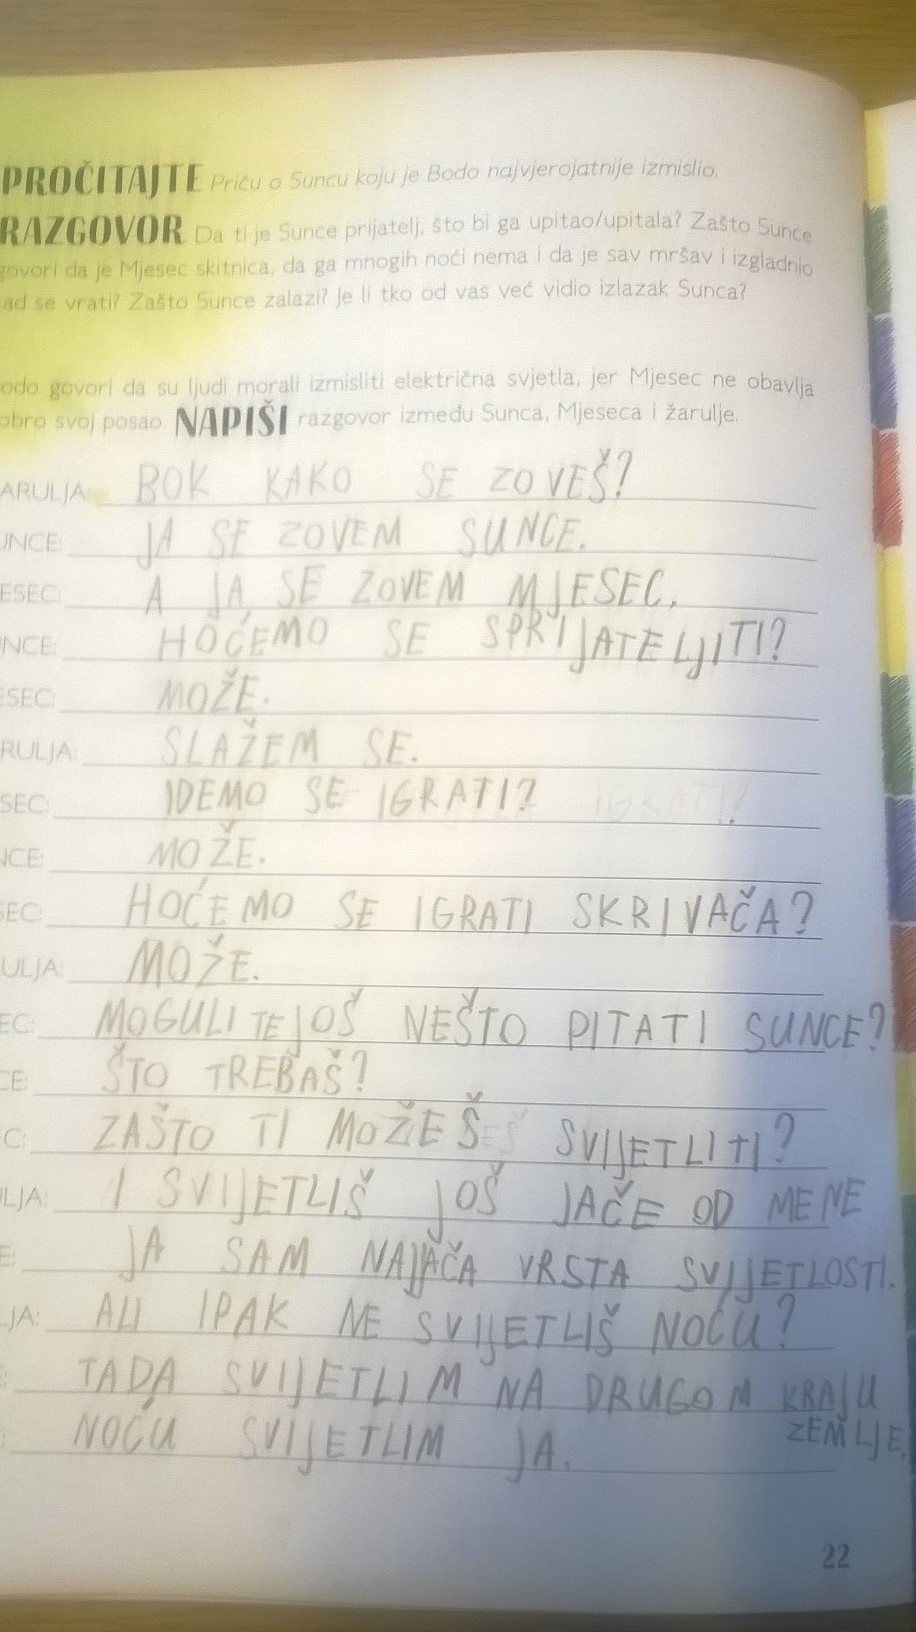 PROČITAJTE Priču o Suncu koju je Bodo najvjerojatnije izmislio.
RAZGOVOR Da ti je Sunce prijatelj, što bi ga upitao/upitala? Zašto Sunce
govori da je Mjesec skitnica, da ga mnogih noći nema i da je sav mršav i izgladnio
ad se vrati? Zašto Sunce zalazi? Je li tko od vas već vidio izlazak Sunca?
odo govori da su ljudi morali izmisliti električna svjetla, jer Mjesec ne obavlja
obro svoj posao. NAPIŠI razgovor između Sunca, Mjeseca i žarulje.
ARULJA: BOK KAKO SE ZOVEŠ?
UNCE: JA SE ZOVEM SUNCE.
ESEC: A JA SE ZOVEM MJESEC.
NCE: HOĆEMO SE SPRIJATELJITI?
ESEC: MOŽE.
RULJA: SLAŽEM SE.
SEC: IDEMO SE IGRATI? IGRATI?
NCE: MOŽE.
SEC: HOĆEMO SE IGRATI SKRIVAČA?
ULJA: MOŽE.
EC: MOGULI TE JOŠ NEŠTO PITATI SUNCE?
CE: ŠTO TREBAŠ?
C: ZAŠTO TI MOŽEŠ SVIJETLITI?
LJA: I SVIJETLIŠ JOŠ JAČE OD MENE
E: JA SAM NAJJAČA VRSTA SVIJETLOSTI.
JA: ALI IPAK NE SVIJETLIŠ NOĆU?
: TADA SVIJETLIM NA DRUGOM KRAJU
ZEMLJE.
NOĆU SVIJETLIM JA.
22